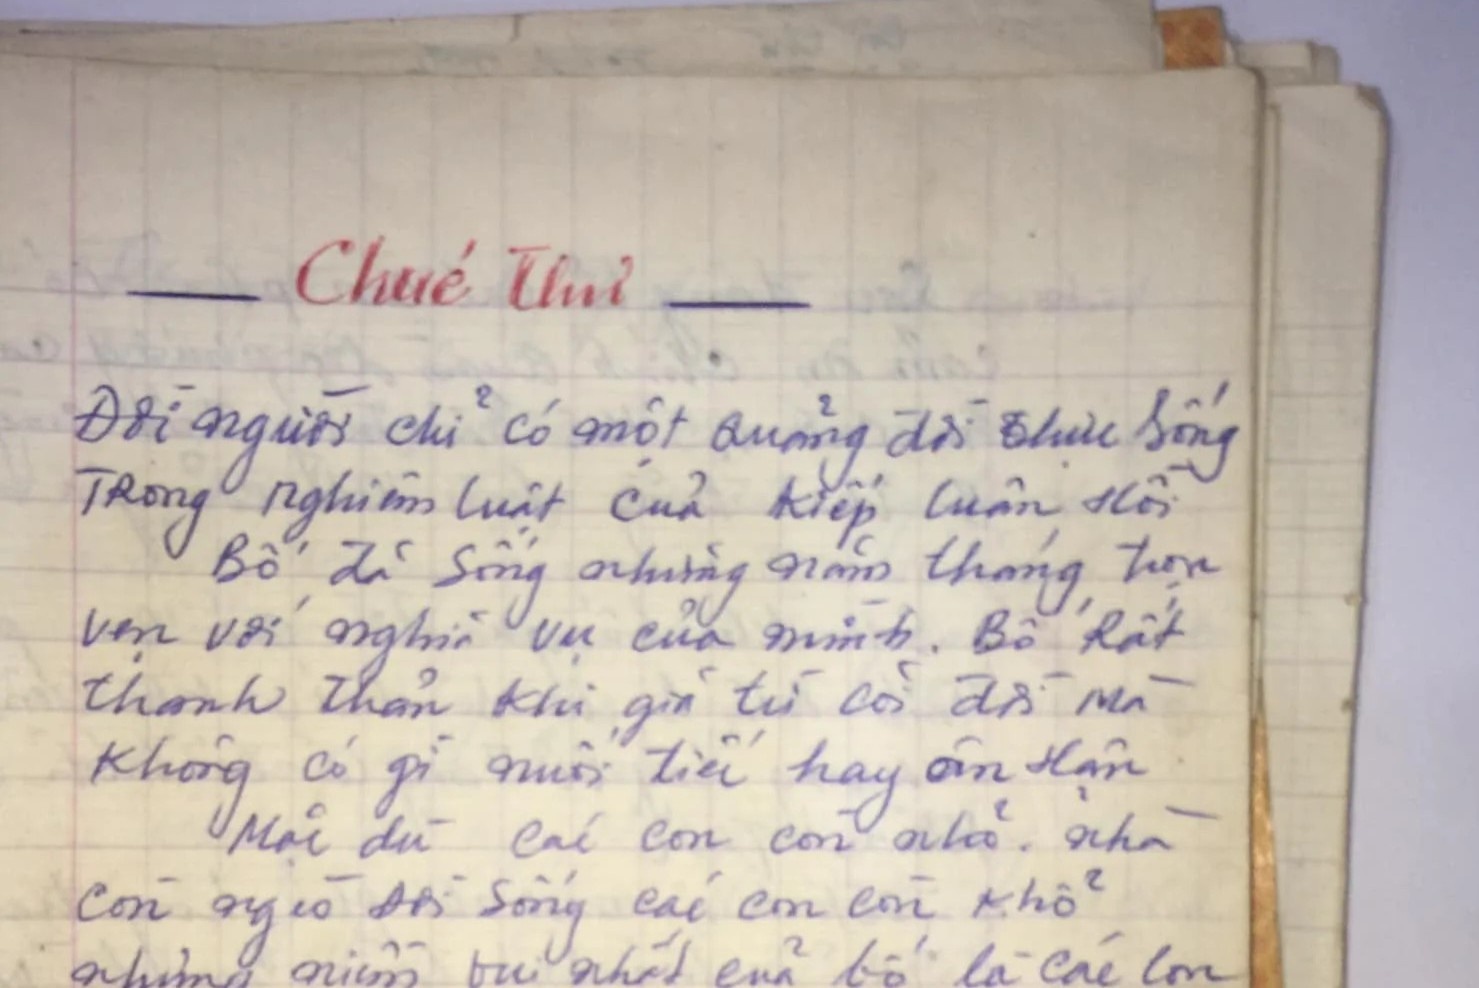 Chúc Thư
Đời người chỉ có một quảng đời thức sống
Trong nghiêm luật của kiếp luân hồi
Bố đã sống những năm tháng trọn
vẹn với nghĩa vụ của mình. Bố rất
thanh thản khi giã từ cõi đời mà
không có gì nuối tiếc hay ân hận
Mặc dù các con còn nhỏ. nhà
còn nghèo đời sống các con còn khổ
nhưng niềm vui nhất của bố là các con